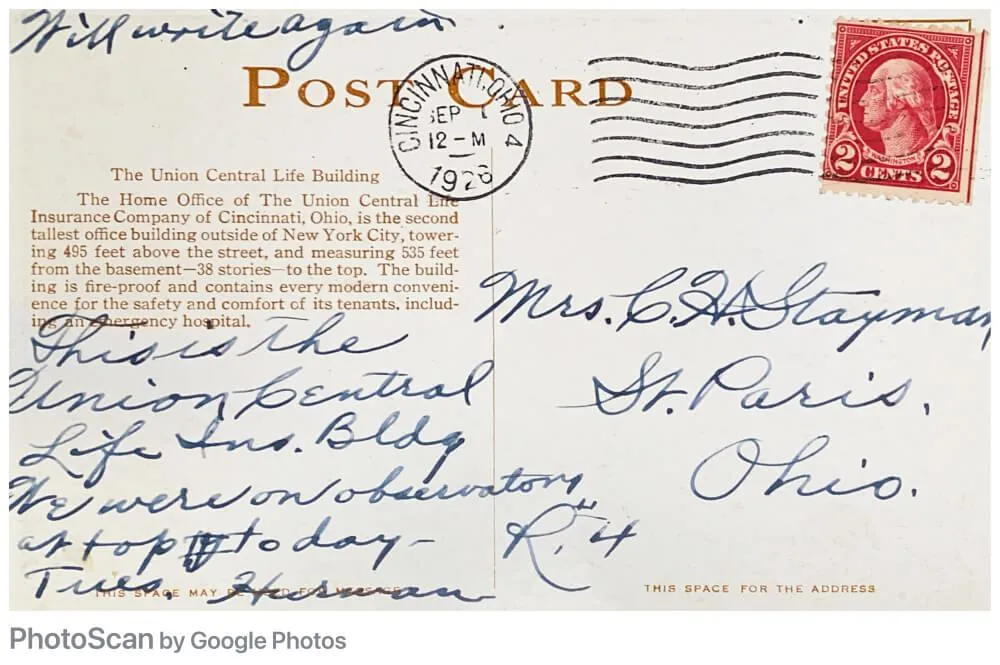 Will write again
POST CARD
CINCINNATI, OHIO 4
SEP
12-M
1926
UNITED STATES POSTAGE
WASHINGTON
2 CENTS 2
The Union Central Life Building
The Home Office of The Union Central Life
Insurance Company of Cincinnati, Ohio, is the second
tallest office building outside of New York City, tower-
ing 495 feet above the street, and measuring 535 feet
from the basement—38 stories—to the top. The build-
ing is fire-proof and contains every modern conveni-
ence for the safety and comfort of its tenants, includ-
ing an emergency hospital.
This is the
Union Central
Life Ins. Bldg
We were on observatory
at top today-
Tues. Herman
Mrs. C. H. Stayman
St. Paris,
Ohio.
R. 4
THIS SPACE MAY BE USED FOR MESSAGE
THIS SPACE FOR THE ADDRESS
PhotoScan by Google Photos